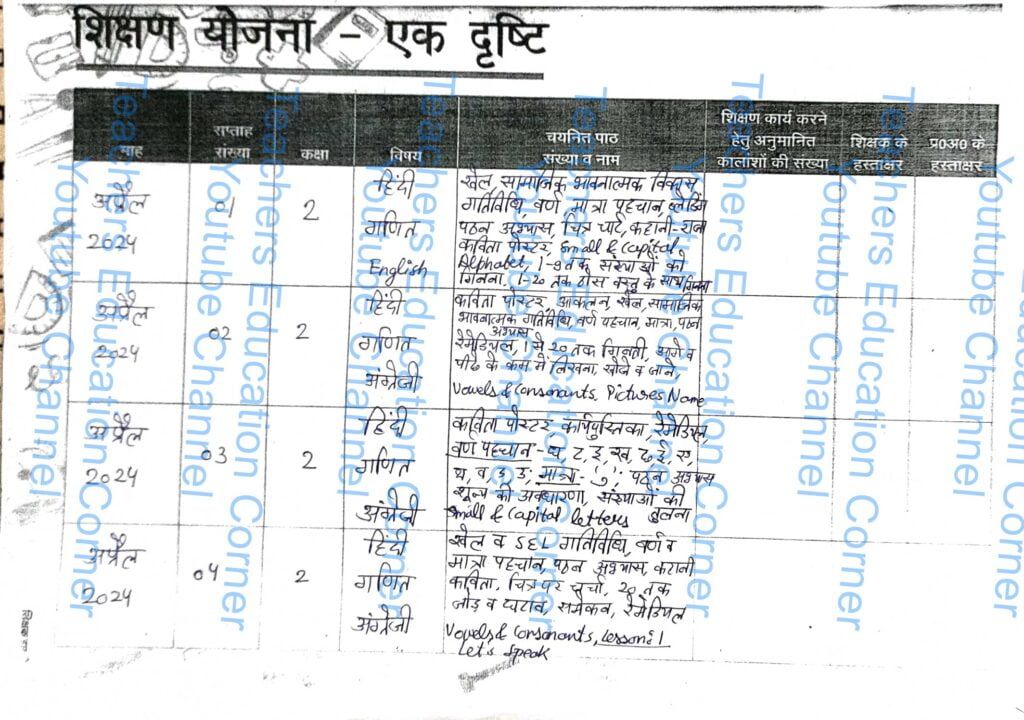 शिक्षण योजना - एक दृष्टि
माह
सप्ताह
संख्या
कक्षा
विषय
चयनित पाठ
संख्या व नाम
शिक्षण कार्य करने
हेतु अनुमानित
कालांशों की संख्या
शिक्षक के
हस्ताक्षर
प्र0अ0 के
हस्ताक्षर
अप्रैल
2024
01
2
हिंदी
गणित
English
खेल, सामाजिक भावनात्मक विकास
गतिविधि, वर्ण मात्रा पहचान
पठन अभ्यास, चित्र चार्ट, कहानी-
कविता पोस्टर, Small & Capital,
Alphabet, 1-9 तक संख्याओं को
गिनना. 1-20 तक ठोस वस्तु के साथ गिनना
अप्रैल
2024
02
2
हिंदी
गणित
अंग्रेजी
कविता पोस्टर, आकलन, खेल, सामाजिक
भावनात्मक गतिविधि, वर्ण पहचान, मात्रा, पठन
अभ्यास
रेमेडियल, 1 से 20 तक गिनती, आगे व
पीछे के क्रम में लिखना, खोजें व जाने,
Vowels & Consonants, Pictures Name
अप्रैल
2024
03
2
हिंदी
गणित
अंग्रेजी
कविता पोस्टर कार्यपुस्तिका, रेमेडियल,
वर्ण पहचान - घ, ट, इ, ख, ढ, ई, ए,
मात्रा- पठन अभ्यास
शून्य की अवधारणा, संख्याओं की
Small & Capital letters तुलना
अप्रैल
2024
04
2
हिंदी
गणित
अंग्रेजी
खेल व SEL गतिविधि, वर्ण व
मात्रा पहचान, पठन अभ्यास, कहानी
कविता, चित्र पर चर्चा, 20 तक
जोड़ व घटाव, समेकन, रेमेडियल
Vowels & Consonants, Lesson:1
Let's Speak
Teachers Education Corner
Youtube Channel
Teachers Education Corner
Youtube Channel
Teachers Education Corner
Youtube Channel